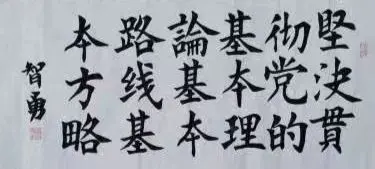 堅決貫
彻党的
基本理
論基本
路线基
本方略
智勇